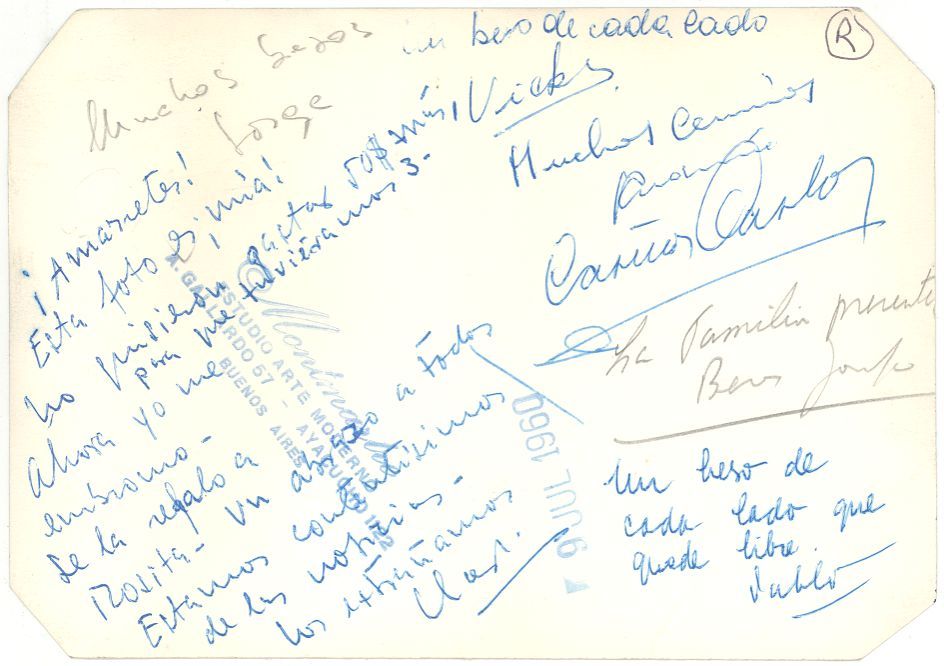 un beso de cada lado
Vicky
R
Muchos besos
Jorge
Muchos
Cariños Carlos
La familia presente
Besos
Un beso de
cada lado que
quede libre.
Pablo
¡Amarretes!
Esta foto es ¡mía!
No quisieron gastar 50$ más
para me tuviéramos 3.
Ahora yo me
emiromo -
Se la regalo a
Rosita - un abrazo a todos
Estamos contentísimos
de las noticias -
los extrañamos
ESTUDIO ARTE MODERNO
A. GALLARDO 57 - AYACUCHO
BUENOS AIRES
9 JUL 1960